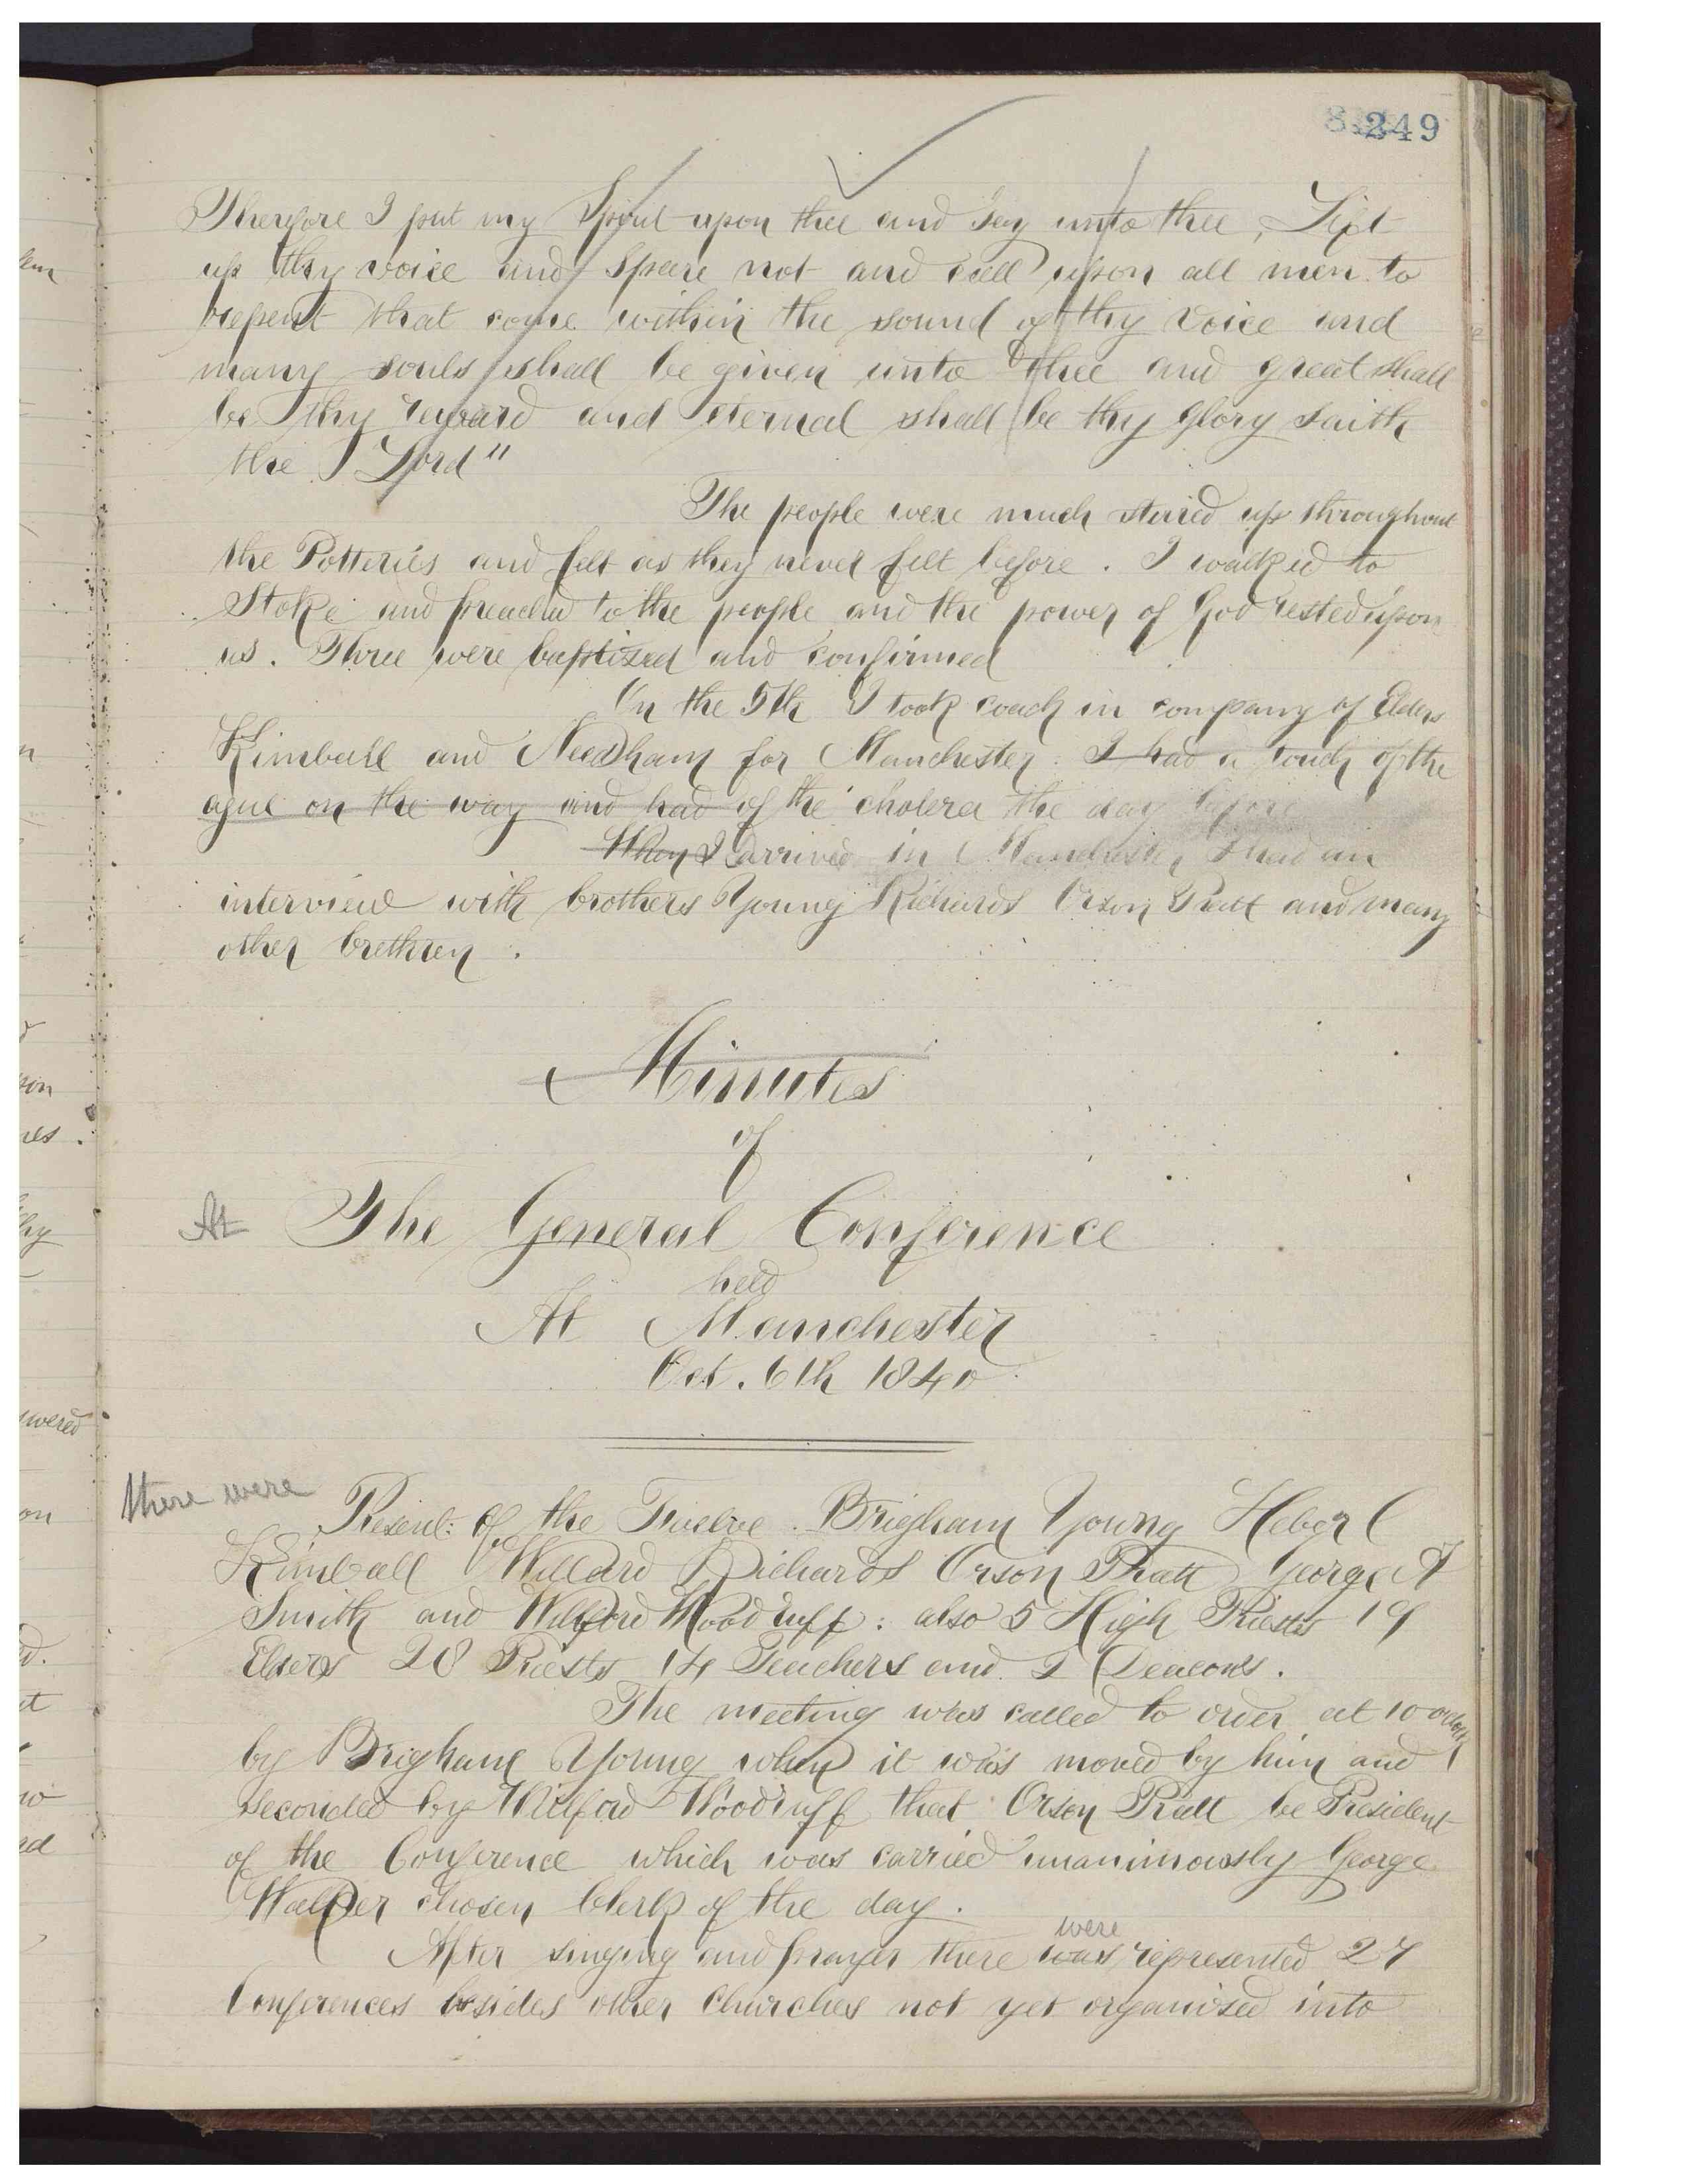 249
Therefore I put my Spirit upon thee and say unto thee, Lift
up thy voice and spare not and call upon all men to
repent that come within the sound of thy voice and
many souls shall be given unto thee and great shall
be thy reward and eternal shall be thy glory saith
the Lord"
The people were much stirred up throughout
the Potteries and felt as they never felt before. I walked to
Stoke and preached to the people and the power of God rested upon
us. Three were baptized and confirmed
On the 5th I took coach in company of Elders
Kimball and Needham for Manchester. I had a touch of the
ague on the way and had of the cholera the day before
When I arrived in Manchester I had an
interview with brothers Young Richards Orson Pratt and many
other brethren.
Minutes
of
At The General Conference
held
At Manchester
Oct. 6th 1840
there were
Present: of the Twelve. Brigham Young Heber C
Kimball Willard Richards Orson Pratt George A
Smith and Wilford Woodruff: also 5 High Priests 19
Elders 28 Priests 14 Teachers and 2 Deacons.
The meeting was called to order at 10 oclock
by Brigham Young when it was moved by him and
seconded by Wilford Woodruff that Orson Pratt be President
of the Conference which was carried unanimously George
Walker chosen Clerk of the day.
were
After singing and prayer there was represented 27
Conferences besides other churches not yet organized into